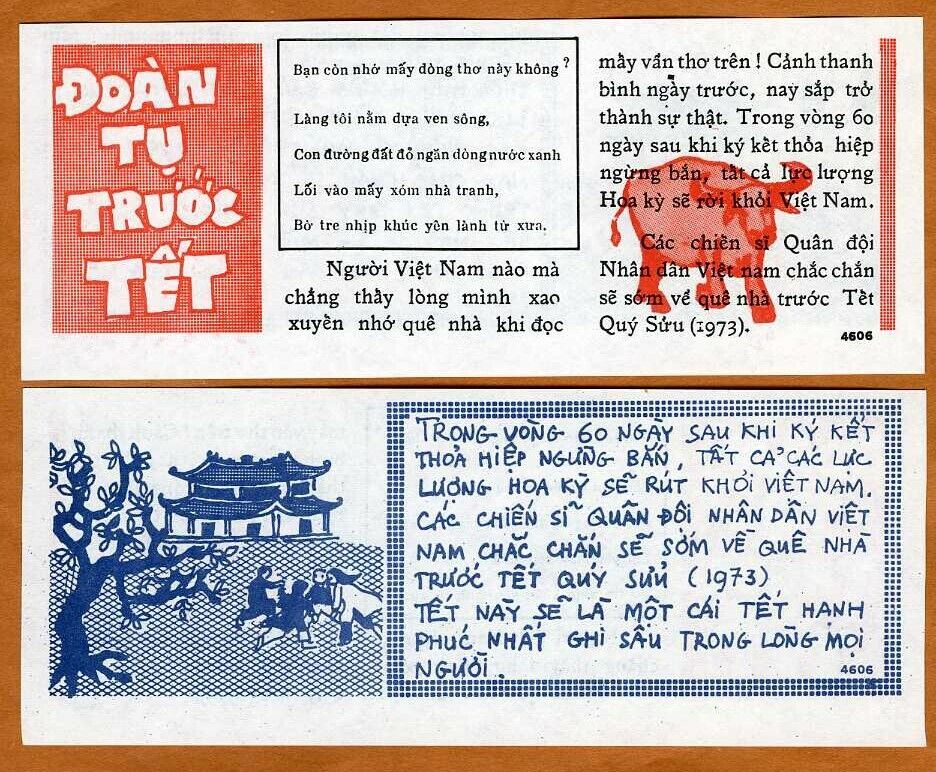 ĐOÀN
TỤ
TRƯỚC
TẾT
Bạn còn nhớ mấy dòng thơ này không ?
Làng tôi nằm dựa ven sông,
Con đường đất đỏ ngăn dòng nước xanh
Lối vào mấy xóm nhà tranh,
Bờ tre nhịp khúc yên lành từ xưa.
Người Việt Nam nào mà
chẳng thầy lòng mình xao
xuyền nhớ quê nhà khi đọc
mầy vần thơ trên ! Cảnh thanh
bình ngày trước, nay sắp trở
thành sự thật. Trong vòng 60
ngày sau khi ký kềt thỏa hiệp
ngừng bắn, tầt cả lực lượng
Hoa kỳ sẽ rời khỏi Việt Nam.
Các chiền sĩ Quân đội
Nhân dân Việt nam chắc chắn
sẽ sớm về quê nhà trước Tềt
Quý Sửu (1973).
4606
TRONG VÒNG 60 NGÀY SAU KHI KÝ KẾT
THOẢ HIỆP NGỪNG BẮN, TẤT CẢ CÁC LỰC
LƯỢNG HOA KỲ SẼ RÚT KHỎI VIỆT NAM.
CÁC CHIẾN SĨ QUÂN ĐỘI NHÂN DÂN VIỆT
NAM CHẮC CHẮN SẼ SỚM VỀ QUÊ NHÀ
TRƯỚC TẾT QUÝ SỬU (1973)
TẾT NÀY SẼ LÀ MỘT CÁI TẾT HẠNH
PHÚC NHẤT GHI SÂU TRONG LÒNG MỌI
NGƯỜI.
4606